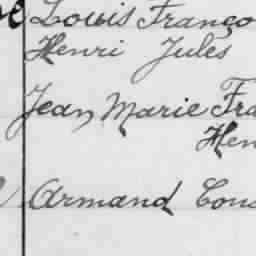 Louis Franço
Henri Jules
Jean Marie Fra
Hen
Armand Cons